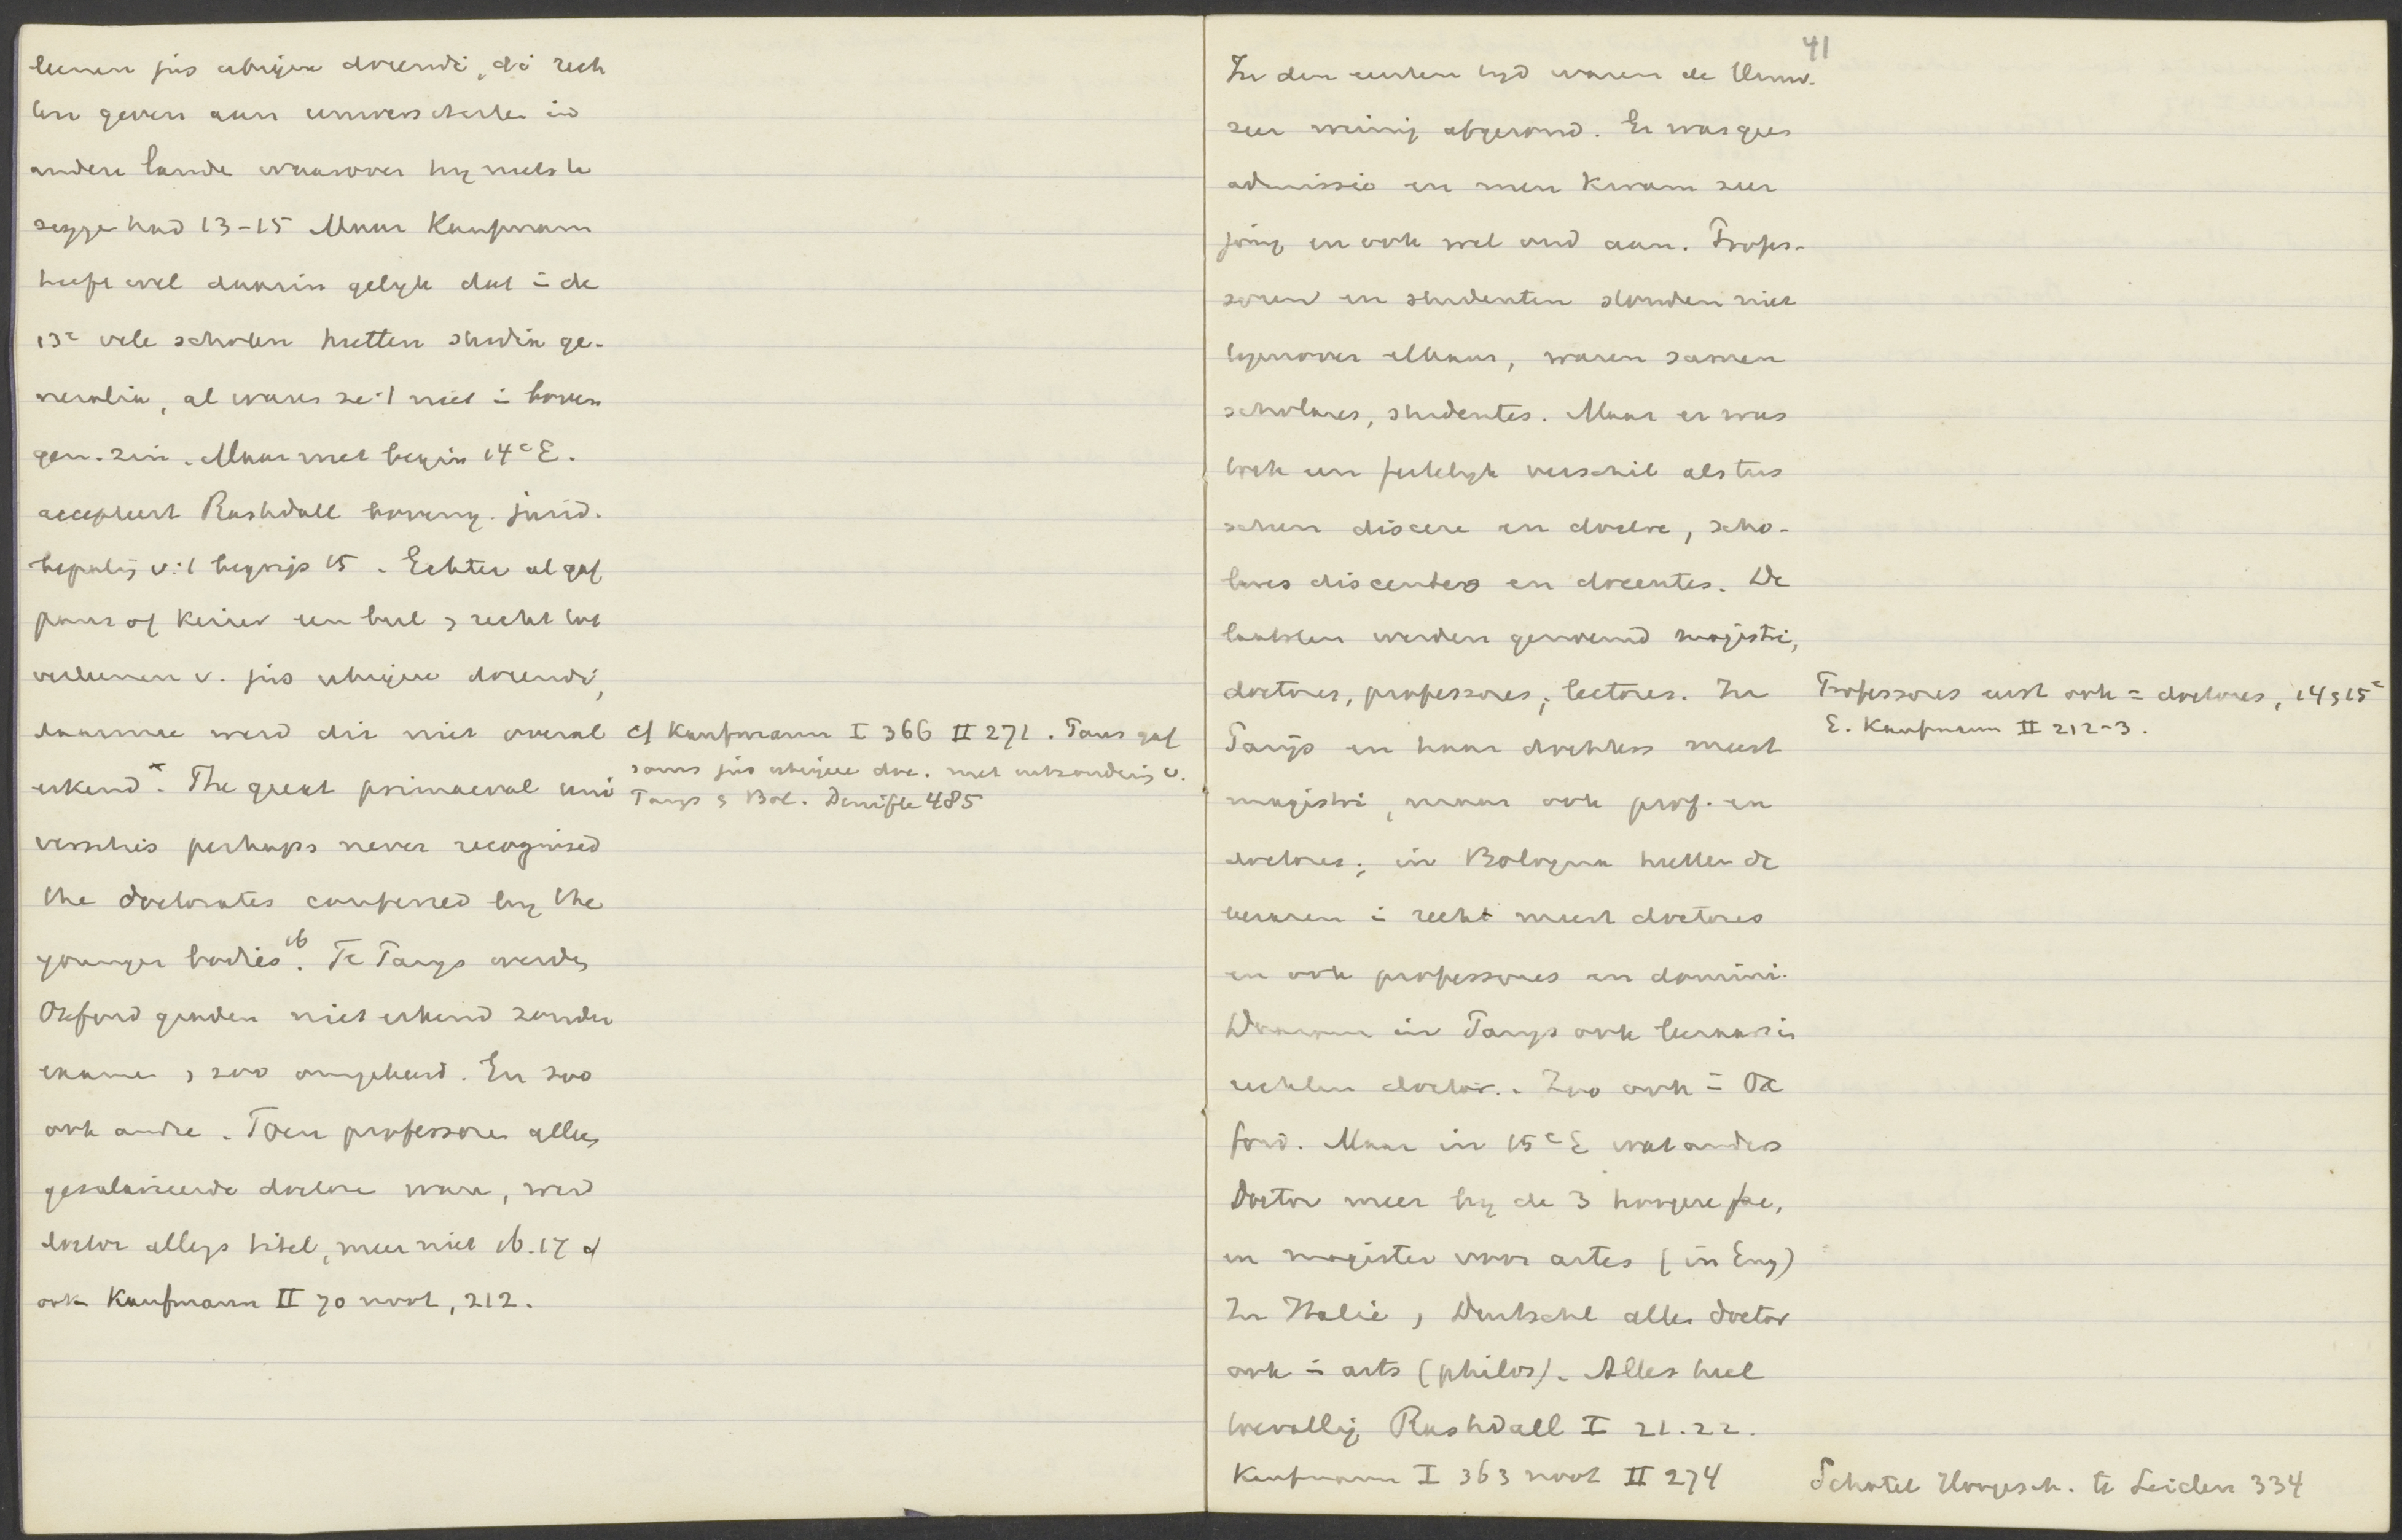 leenen jus ubique docendi, di rech
ten geven aan universiteiten in
andere lande waarover hy niets te
zegge had 13-15 Maar Kaufmann
heeft wel daarin gelyk dat i de
13e vele scholen heetten studia ge-
neralia, al waren ze 't niet i boven
gen. zin. Maar met begin 14e E.
accepteert Rashdall boveng. jurid.
bepaling v. 't begrip 15. Echter al gaf
paus of keizer een bul & recht tot
verleenen v. jus ubique docendi,
daarmee werd dit niet overal
erkend x. The great primaeval uni
versities perhaps never recognised
the doctorates conferred by the
younger bodies ib. Te Parys werden
Oxford graden niet erkend zonder
examen & zoo omgekeerd. En zoo
ook andre. Toen professoren alleen
gesalarieerde doctore ware, werd
doctor alleen titel, meer niet ib. 17 cf
ook Kaufmann II 70 noot, 212.
cf Kaufmann I 366 II 271. Paus gaf
soms jus ubique doc. met uitzondering v.
Parys & Bol. Denifle 485
41
In den eersten tyd waren de Univ.
zeer weinig afgerond. Er was geen
admissio en men kwam zeer
jong en ook wel oud aan. Profes-
soren en studenten stonden niet
tegenover elkaar, waren samen
scholares, studentes. Maar er was
toch een feitelyk verschil als tus
schen discere en docere, scho-
lares discentes en docentes. De
laatsten werden genoemd magistri,
doctores, professores, lectores. In
Parijs en haar dochters meest
magistri, maar ook prof. en
doctores; in Bologna heetten de
leeraren i recht meest doctores
en ook professores en domini.
Daarom in Parys ook leeraar in
rechten doctor. Zoo ook i Ox
ford. Maar in 15e E wat anders
Doctor meer by de 3 hoogere fac,
en magister voor artes (in Eng)
In Italie, Duitschl alles doctor
ook i arts (philos). Alles heel
toevallig Rashdall I 21.22.
Kaufmann I 363 noot II 274
Professores eerst ook = doctores, 14 & 15e
E. Kaufmann II 212-3.
Schotel Hoogesch. te Leiden 334